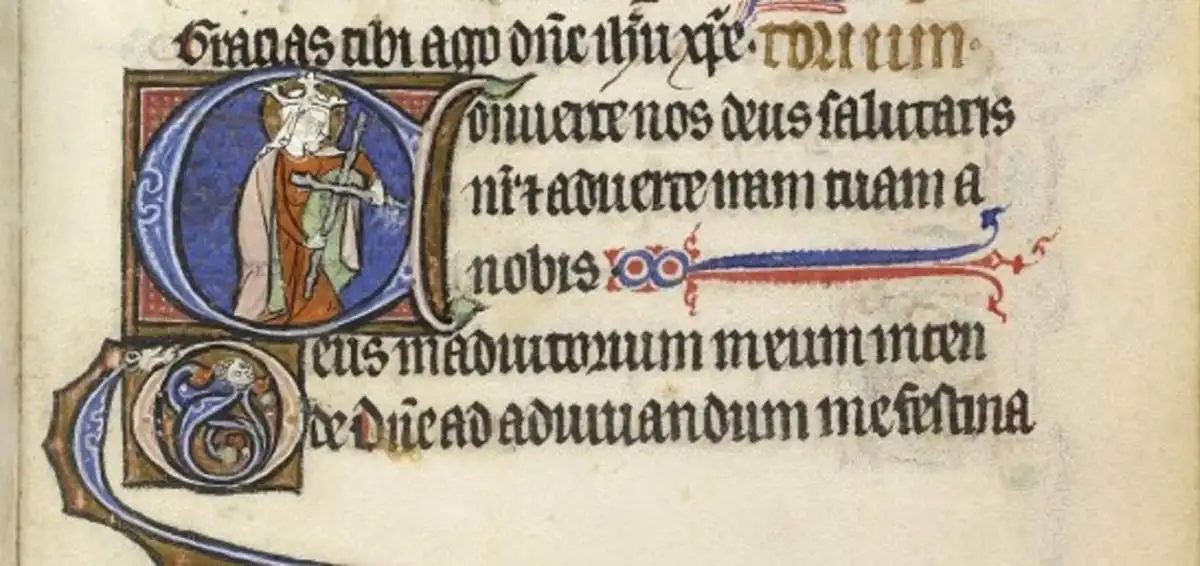 Gracias tibi ago dñe ihũ xp̃e. torium.
Conuerte nos deus salutaris
nr̃ ⁊ aduerte iram tuam a
nobis
Deus in adiutorium meum inten
de dñe ad adiuuandum me festina